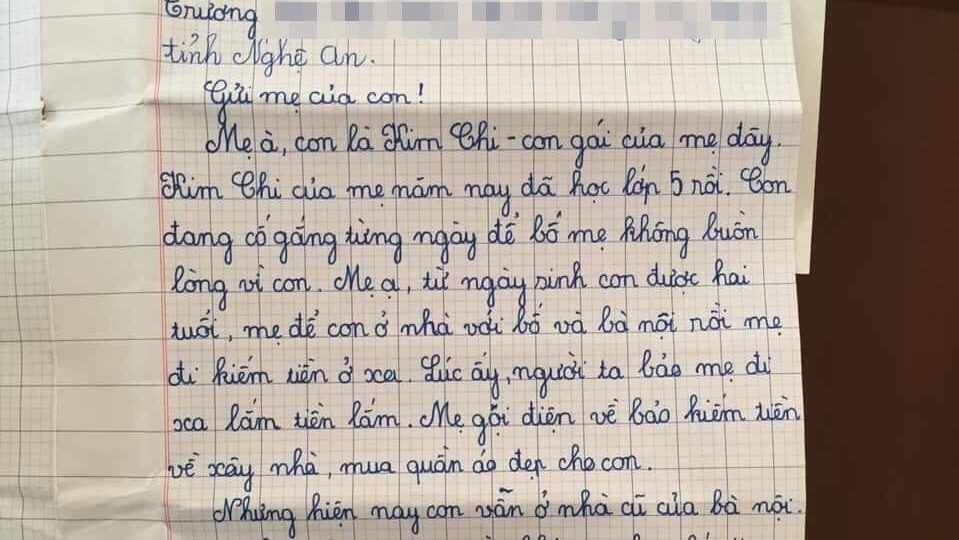 Trương
tỉnh Nghệ An.
Gửi mẹ của con!
Mẹ à, con là Kim Chi - con gái của mẹ đây.
Kim Chi của mẹ năm nay đã học lớp 5 rồi. Con
đang cố gắng từng ngày để bố mẹ không buồn
lòng vì con. Mẹ ạ, từ ngày sinh con được hai
tuổi, mẹ để con ở nhà với bố và bà nội rồi mẹ
đi kiếm tiền ở xa. Lúc ấy, người ta bảo mẹ đi
xa lắm tiền lắm. Mẹ gọi điện về bảo kiếm tiền
về xây nhà, mua quần áo đẹp cho con.
Nhưng hiện nay con vẫn ở nhà cũ của bà nội.